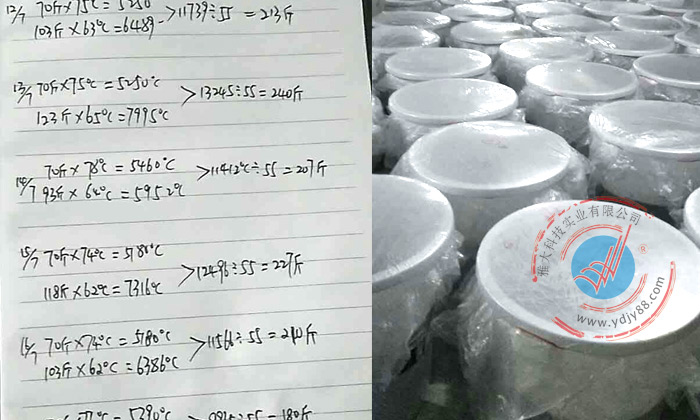 12/7 70斤×75℃=5250
103斤×63℃=6489 >11739÷55=213斤
13/7 70斤×75℃=5250℃
123斤×65℃=7995℃ >13245÷55=240斤
14/7 70斤×78℃=5460℃
93斤×64℃=5952℃ >11412℃÷55=207斤
15/7 70斤×74℃=5180℃
118斤×62℃=7316℃ >12496÷55=227斤
16/7 70斤×74℃=5180℃
103斤×62℃=6386℃ >11566÷55=210斤
=5390℃
÷55=180斤
雅大科技实业有限公司
www.ydjy88.com